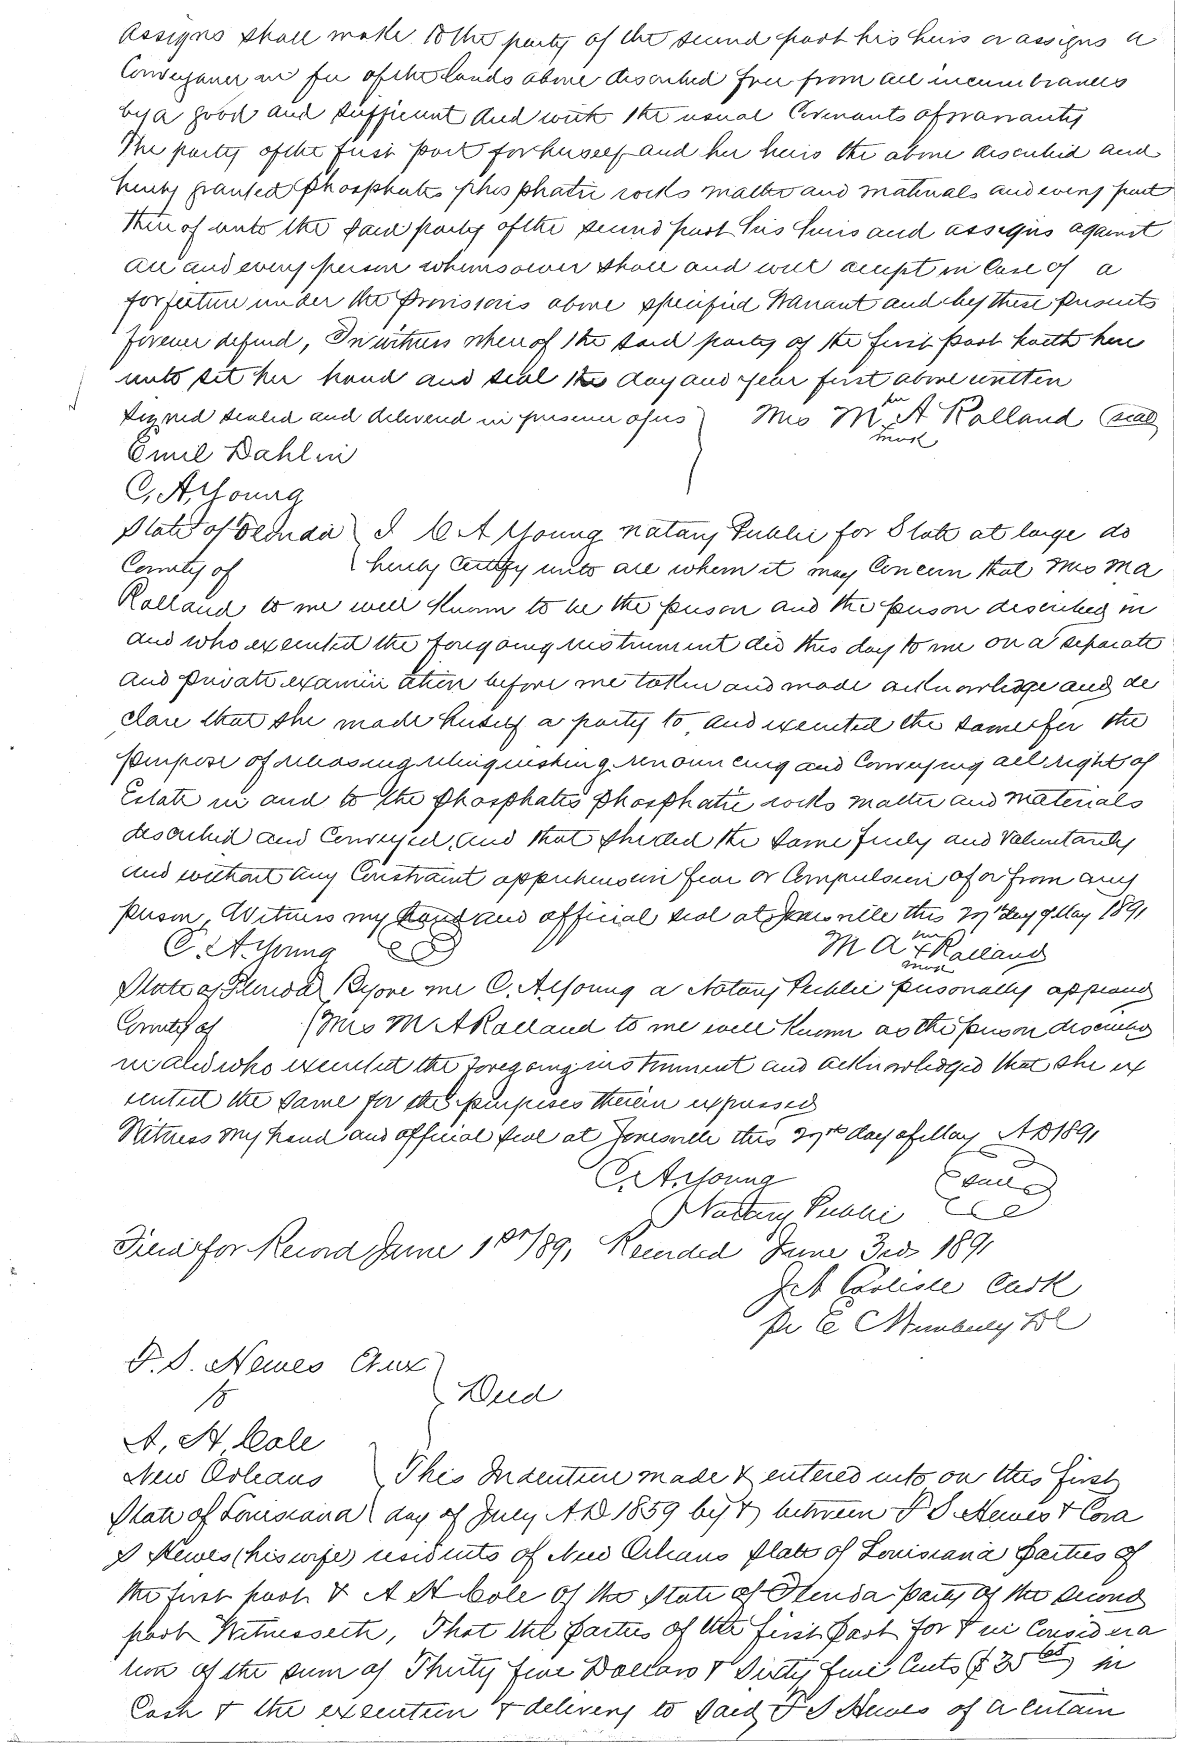 Assigns shall make to the party of the second part his heirs or assigns a
Conveyance in fee of the lands above described free from all incumbrances
by a good and sufficient deed with the usual Covenants of warranty
The party of the first part for herself and her heirs the above described and
hereby granted phosphates phosphatic rocks matter and materials and every part
thereof unto the said party of the second part his heirs and assigns against
all and every person whomsoever shall and will except in Case of a
forfeiture under the provisions above specified Warrant and by these presents
forever defend, In witness whereof the said party of the first part hath here
unto set her hand and seal the day and year first above written
Signed sealed and delivered in presence of us } Mrs M her A Rolland (seal)
mark
Emil Dahlin
C. A. Young
State of Florida } I C A Young Notary Public for State at large do
County of } hereby Certify unto all whom it may Concern that Mrs M A
Rolland to me well known to be the person and the person described in
and who executed the foregoing instrument did this day to me on a separate
and private examin ation before me taken and made acknowledge and de
clare that she made herself a party to, and executed the same for the
purpose of releasing relinquishing renouncing and Conveying all right of
Estate in and to the phosphates phosphatic rocks matter and materials
described and Conveyed, and that she did the same freely and Voluntarily
and without any Constraint apprehension fear or Compulsion of or from any
person, Witness my hand and official seal at Jonesville this 27th day of May 1891
C. A. Young M A her x Rolland
mark
State of Florida } Before me C. A. Young a Notary Public personally appeared
County of } Mrs M A Rolland to me well known as the person described
in and who executed the foregoing instrument and acknowledged that she ex
ecuted the same for the purposes therein expressed
Witness my hand and official seal at Jonesville this 27th day of May AD 1891
C. A. Young (seal)
Notary Public
Filed for Record June 1st 1891 Recorded June 3rd 1891
J A Carlisle Clerk
Pr E C Wimberly DC
F. S. Hewes & ux
to } Deed
A. H. Cole
New Orleans } This Indenture made & entered into on this first
State of Louisiana } day of July AD 1859 by & between F S Hewes & Cora
S Hewes (his wife) residents of New Orleans State of Louisiana parties of
the first part & A H Cole of the State of Florida party of the second
part Witnesseth, That the parties of the first part for & in Considera
tion of the sum of Thirty five Dollars & Sixty five Cents ($35 65) in
Cash & the execution & delivery to said F S Hewes of a certain